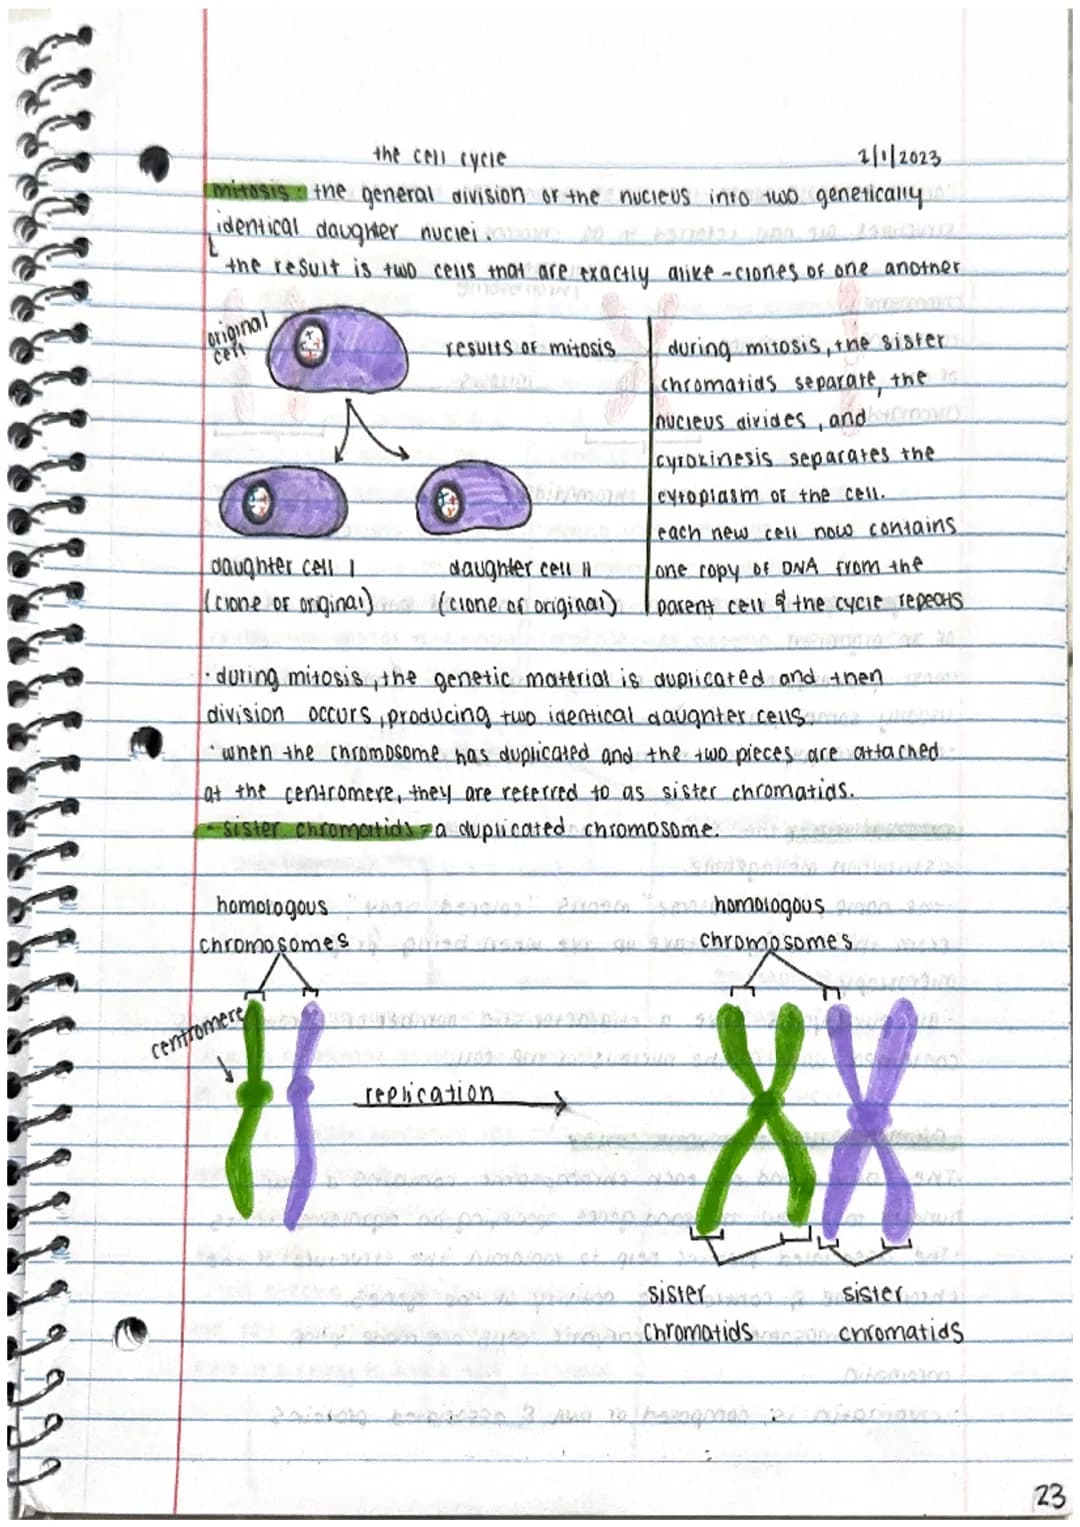 the cell cycle 2/1/2023
mitosis: the general division of the nucleus into two genetically
identical daughter nuclei.
the result is two cells that are exactly alike - clones of one another
original
cell
results of mitosis
daughter cell I daughter cell II
(clone of original) (clone of original)
during mitosis, the sister
chromatids separate, the
nucleus divides, and
cytokinesis separates the
cytoplasm of the cell.
each new cell now contains
one copy of DNA from the
parent cell & the cycle repeats
· during mitosis, the genetic material is duplicated and then
division occurs, producing two identical daughter cells.
· when the chromosome has duplicated and the two pieces are attached
at the centromere, they are referred to as sister chromatids.
- sister chromatids = a duplicated chromosome.
homologous
chromosomes
centromere
replication
homologous
chromosomes
sister
chromatids
sister
chromatids
23